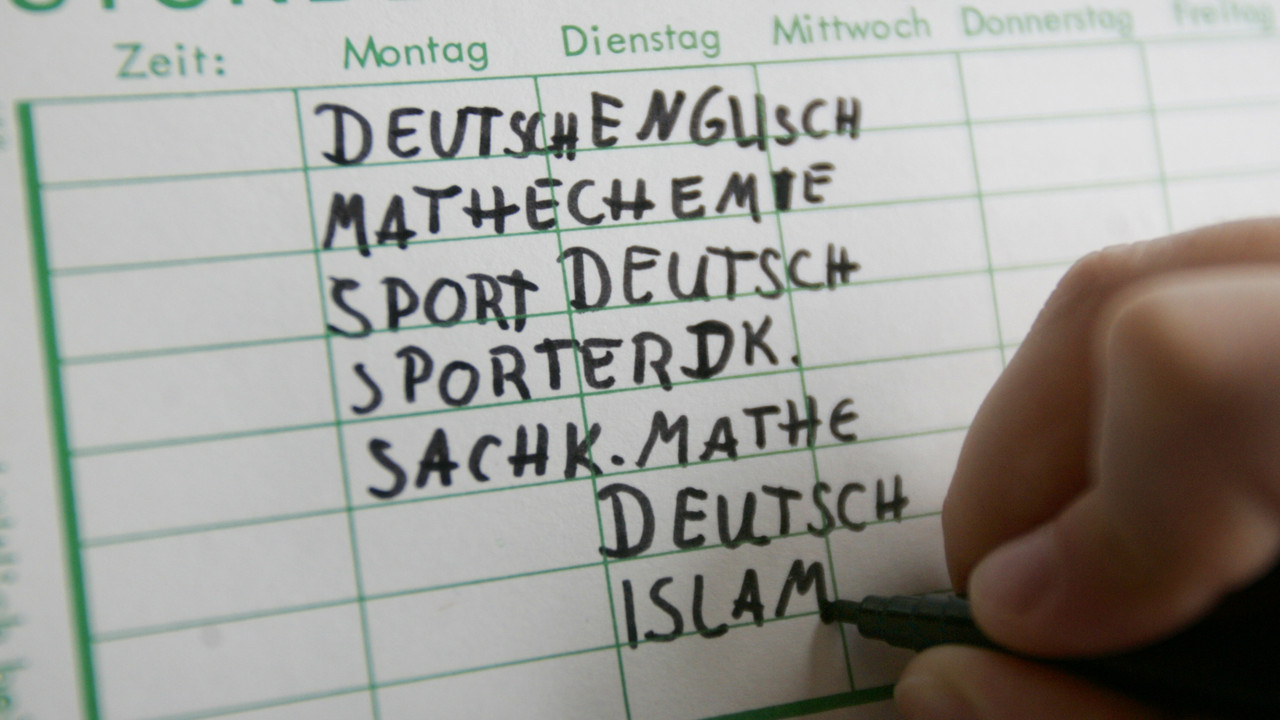 Zeit: Montag Dienstag Mittwoch Donnerstag Freitag
DEUTSCH ENGLISCH
MATHE CHEMIE
SPORT DEUTSCH
SPORT ERDK.
SACHK. MATHE
DEUTSCH
ISLAM